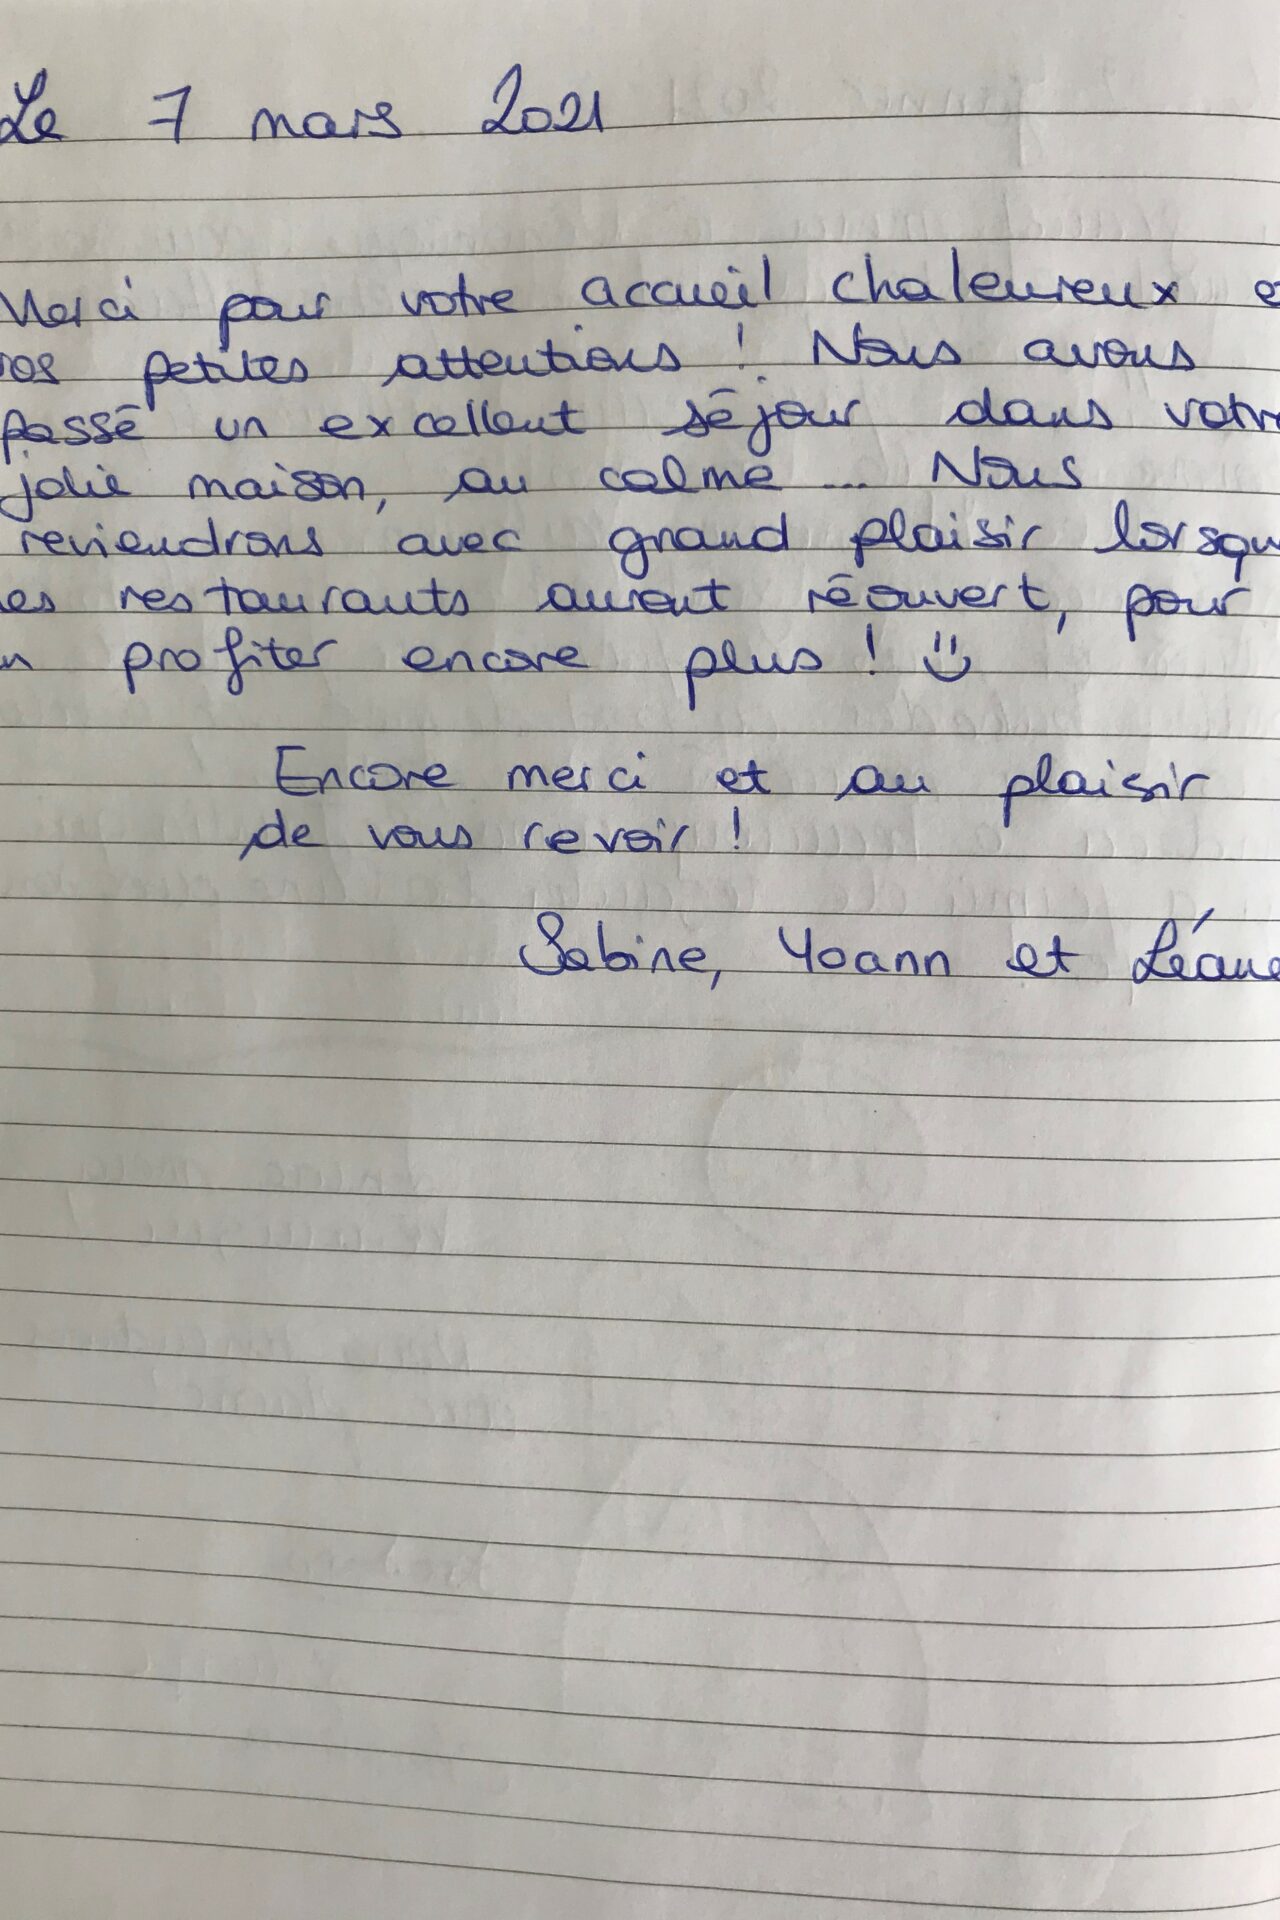 Le 7 mars 2021
Merci pour votre accueil chaleureux e
vos petites attentions ! Nous avons
passé un excellent séjour dans votr
jolie maison, au calme ... Nous
reviendrons avec grand plaisir lorsqu
es restaurants auront réouvert, pour
n profiter encore plus ! :)
Encore merci et au plaisir
de vous revoir !
Sabine, Yoann et Léane